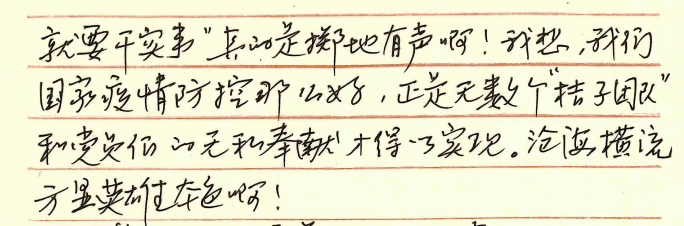 就要干实事"真的是掷地有声啊！我想，我们
国家疫情防控那么好，正是无数个"桔子团队"
和党员们的无私奉献才得以实现。沧海横流
方显英雄本色啊！